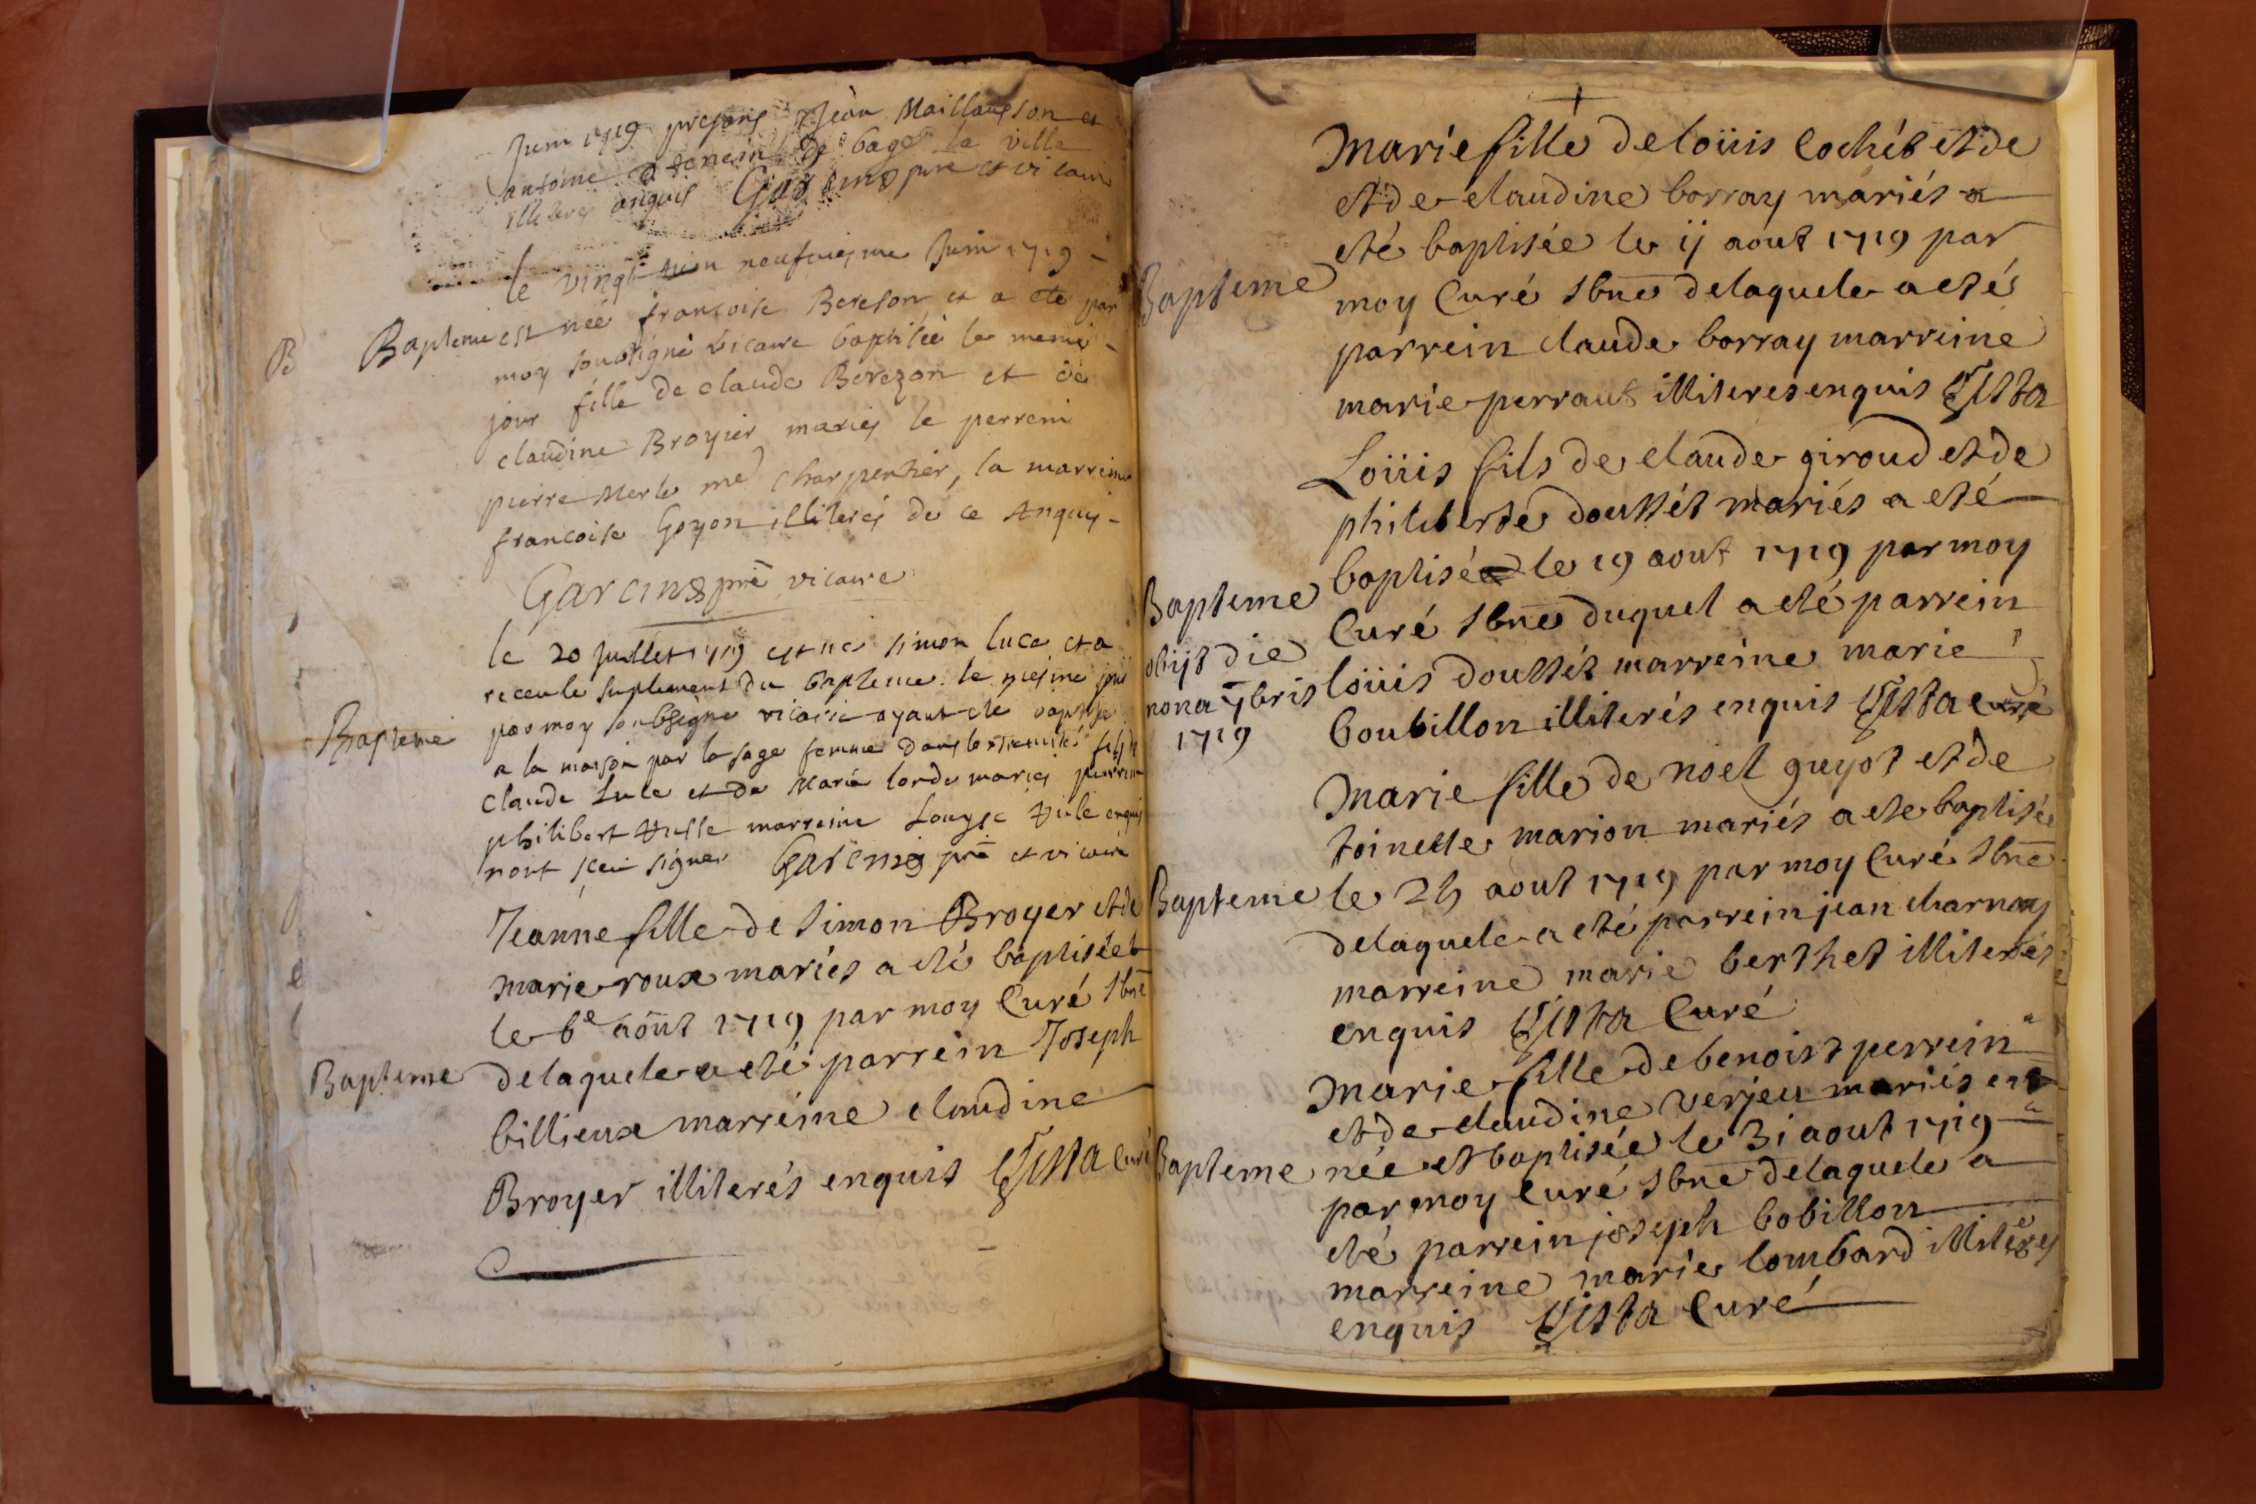 Juin 1719 presans Jean Maillanson et
antoine de bagé la ville
illiteres enquis Garcins pre et vicaire
le vingt neufviesme Juin 1719
Bapteme est née françoise Bereson et a ete par
moy soubsigné vicaire baptisée le meme
jour fille de claude Berezon et de
claudine Broyier mariés le perrein
pierre Merle me charpentier, la marreine
francoise Goyon illiterés de ce Anquis
Garcins pre vicaire
le 20 Juillet 1719 est né simon luce et a
receu le suplement du bapteme le mesme jour
Bapteme
par moy soubsigne vicaire ayant ete baptisé
a la maison par la sage femme dans lextremité fils de
claude Luce et de Marie lorde mariés perrein
philibert marreine Louyse enquis
nont sceu signer Garcins pre et vicaire
Jeanne fille de simon Broyer et de
marie roux mariés a eté baptisée
le 6e aoust 1719 par moy Curé sbne
Bapteme
delaquele a eté parrein Joseph
billieux marreine claudine
Broyer illiterés enquis Gista Curé
Marie fille de loüis Cochet et de
et de claudine borray mariés a
eté baptisée le ij aout 1719 par
Bapteme
moy Curé sbne delaquele a eté
parrein claude borray marreine
marie perraut illiteres enquis Gista
Loüis fils de claude giroud et de
philiberte douttét mariés a eté
baptisé le 19 aout 1719 par moy
Bapteme
Curé sbne duquel a eté parrein
obijt die
nona 7bris
1719
loüis douttét marreine marie
boubillon illiterés enquis Gista Curé
Marie fille de noel guyot et de
toinette marion mariés a ete baptisée
Bapteme
le 24 aout 1719 par moy Curé sbne
delaquele a eté parrein jean charnay
marreine marie berthet illiterés
enquis Gista Curé
Marie fille de benoist perrein
et de claudine verjeu mariés est
Bapteme
née et baptisée le 31 aout 1719
par moy Curé sbne delaquele a
eté parrein joseph bobillon
marreine marie lombard illiteres
enquis Gista Curé